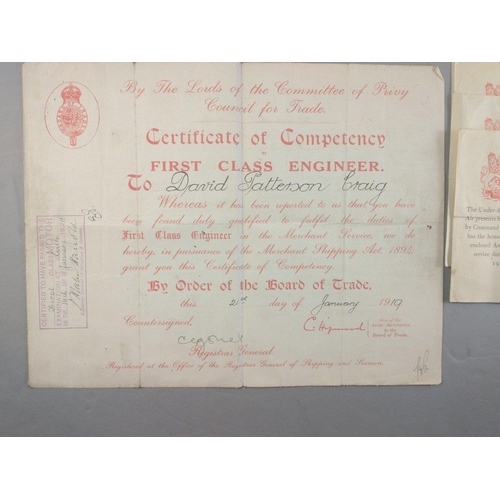 By The Lords of the Committee of Privy
Council for Trade.
Certificate of Competency
FIRST CLASS ENGINEER.
To David Patterson Craig
Whereas it has been reported to us that you have
been found duly qualified to fulfil the duties of
First Class Engineer in the Merchant Service, we do
hereby, in pursuance of the Merchant Shipping Act, 1894,
grant you this Certificate of Competency.
By Order of the Board of Trade.
this 21st day of January 1919
Countersigned,
One of the
to the
Board of Trade.
Registrar General.
Registered at the Office of the Registrar General of Shipping and Seamen.
CERTIFIED TO HAVE PASSED THE
The Under-
Air presents
by Command
has the hono
enclosed
service du